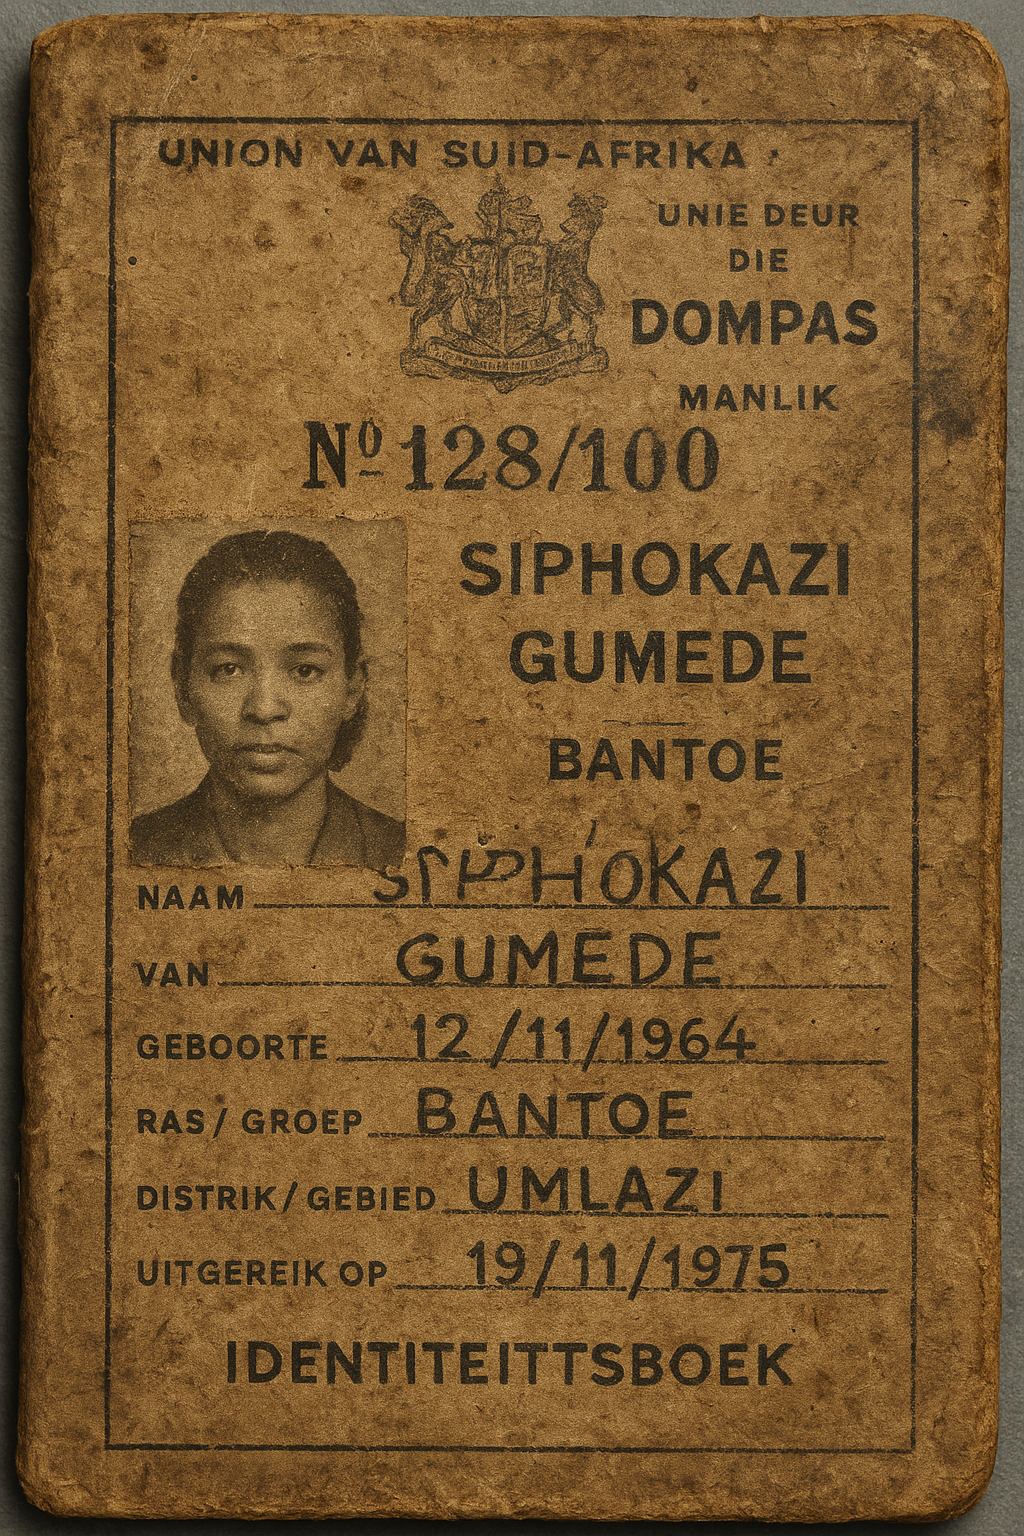 UNION VAN SUID-AFRIKA
UNIE DEUR
DIE
DOMPAS
MANLIK
Nº 128/100
SIPHOKAZI
GUMEDE
BANTOE
NAAM SIPHOKAZI
VAN GUMEDE
GEBOORTE 12/11/1964
RAS/GROEP BANTOE
DISTRIK/GEBIED UMLAZI
UITGEREIK OP 19/11/1975
IDENTITEITTSBOEK